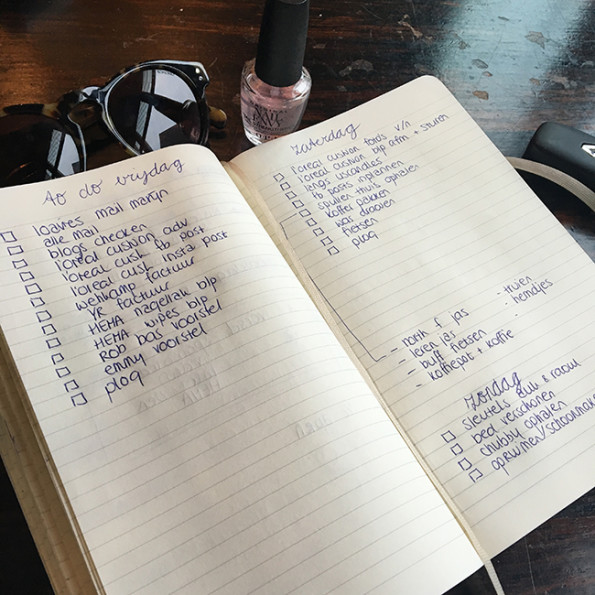 To do vrijdag
loavies mail marijn
alle mail
blogs checken
l'oreal cushion adv
l'oreal cush fb post
l'oreal cush insta post
wehkamp factuur
YR factuur
HEMA nagellak blp
HEMA wipes blp
ROB bas voorstel
emmy voorstel
plog
zaterdag
l'oreal cushion foto's v/n
l'oreal cushion blp afm + sturen
langs uscandles
fb posts inplannen
spullen thuis ophalen
koffer pakken
was draaien
fietsen
plog
- north f jas
- leren jas
- buff fietsen
- koffiepot + koffie
- truien
- hemdjes
zondag
sleutels & raoul
bed verschonen
chubby ophalen
opruimen/schoonmaken
OPI